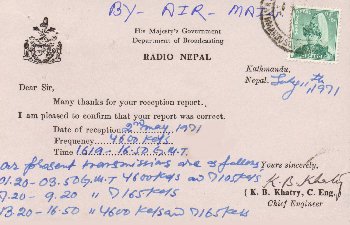 BY - AIR - MAI
His Majesty's Government
Department of Broadcasting
RADIO NEPAL
Kathmandu,
Nepal. July 11th 1971
Dear Sir,
Many thanks for your reception report.
I am pleased to confirm that your report was correct.
Date of reception 2nd may 1971
Frequency 4600 Kc/s
Time 1619 - 1650 G.M.T.
Our present transmissions are as follows
01.20 - 03.50 G.M.T 4600 Kc/s and 7165 Kc/s
7.20 - 9.20 " 7165 Kc/s
13.20 - 16.50 " 4600 Kc/s and 7165 Kc/s
Yours sincerely,
K.B. Khatry
( K. B. Khatry, C. Eng.,
Chief Engineer